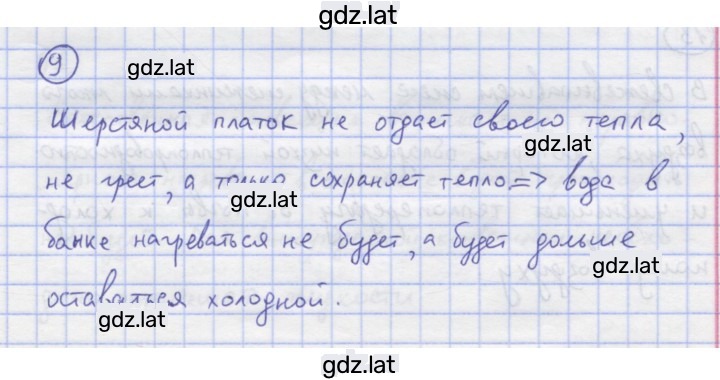 gdz.lat
9
gdz.lat
Шерстяной платок не отдает своего тепла,
gdz.lat
не греет, а только сохраняет тепло => вода в
gdz.lat
банке нагреваться не будет, а будет дольше
gdz.lat
оставаться холодной.
gdz.lat
gdz.lat